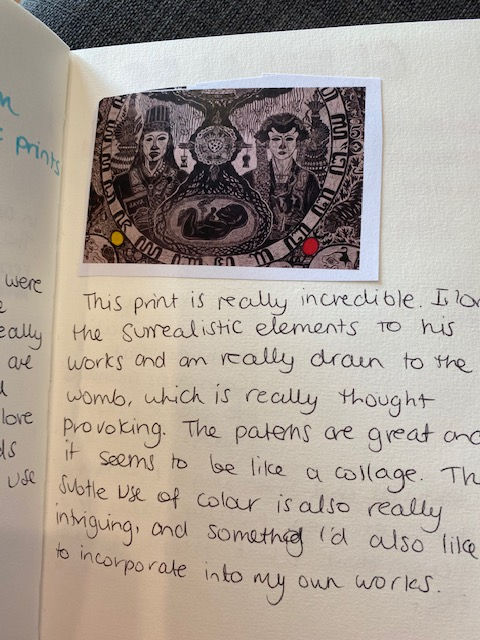 prints
were
eally
are
love
ds
use
This print is really incredible. I lo
the surrealistic elements to his
works and am really drawn to the
womb, which is really thought
provoking. The paterns are great and
it seems to be like a collage. Th
subtle use of colour is also really
intriguing, and something I'd also like
to incorporate into my own works.